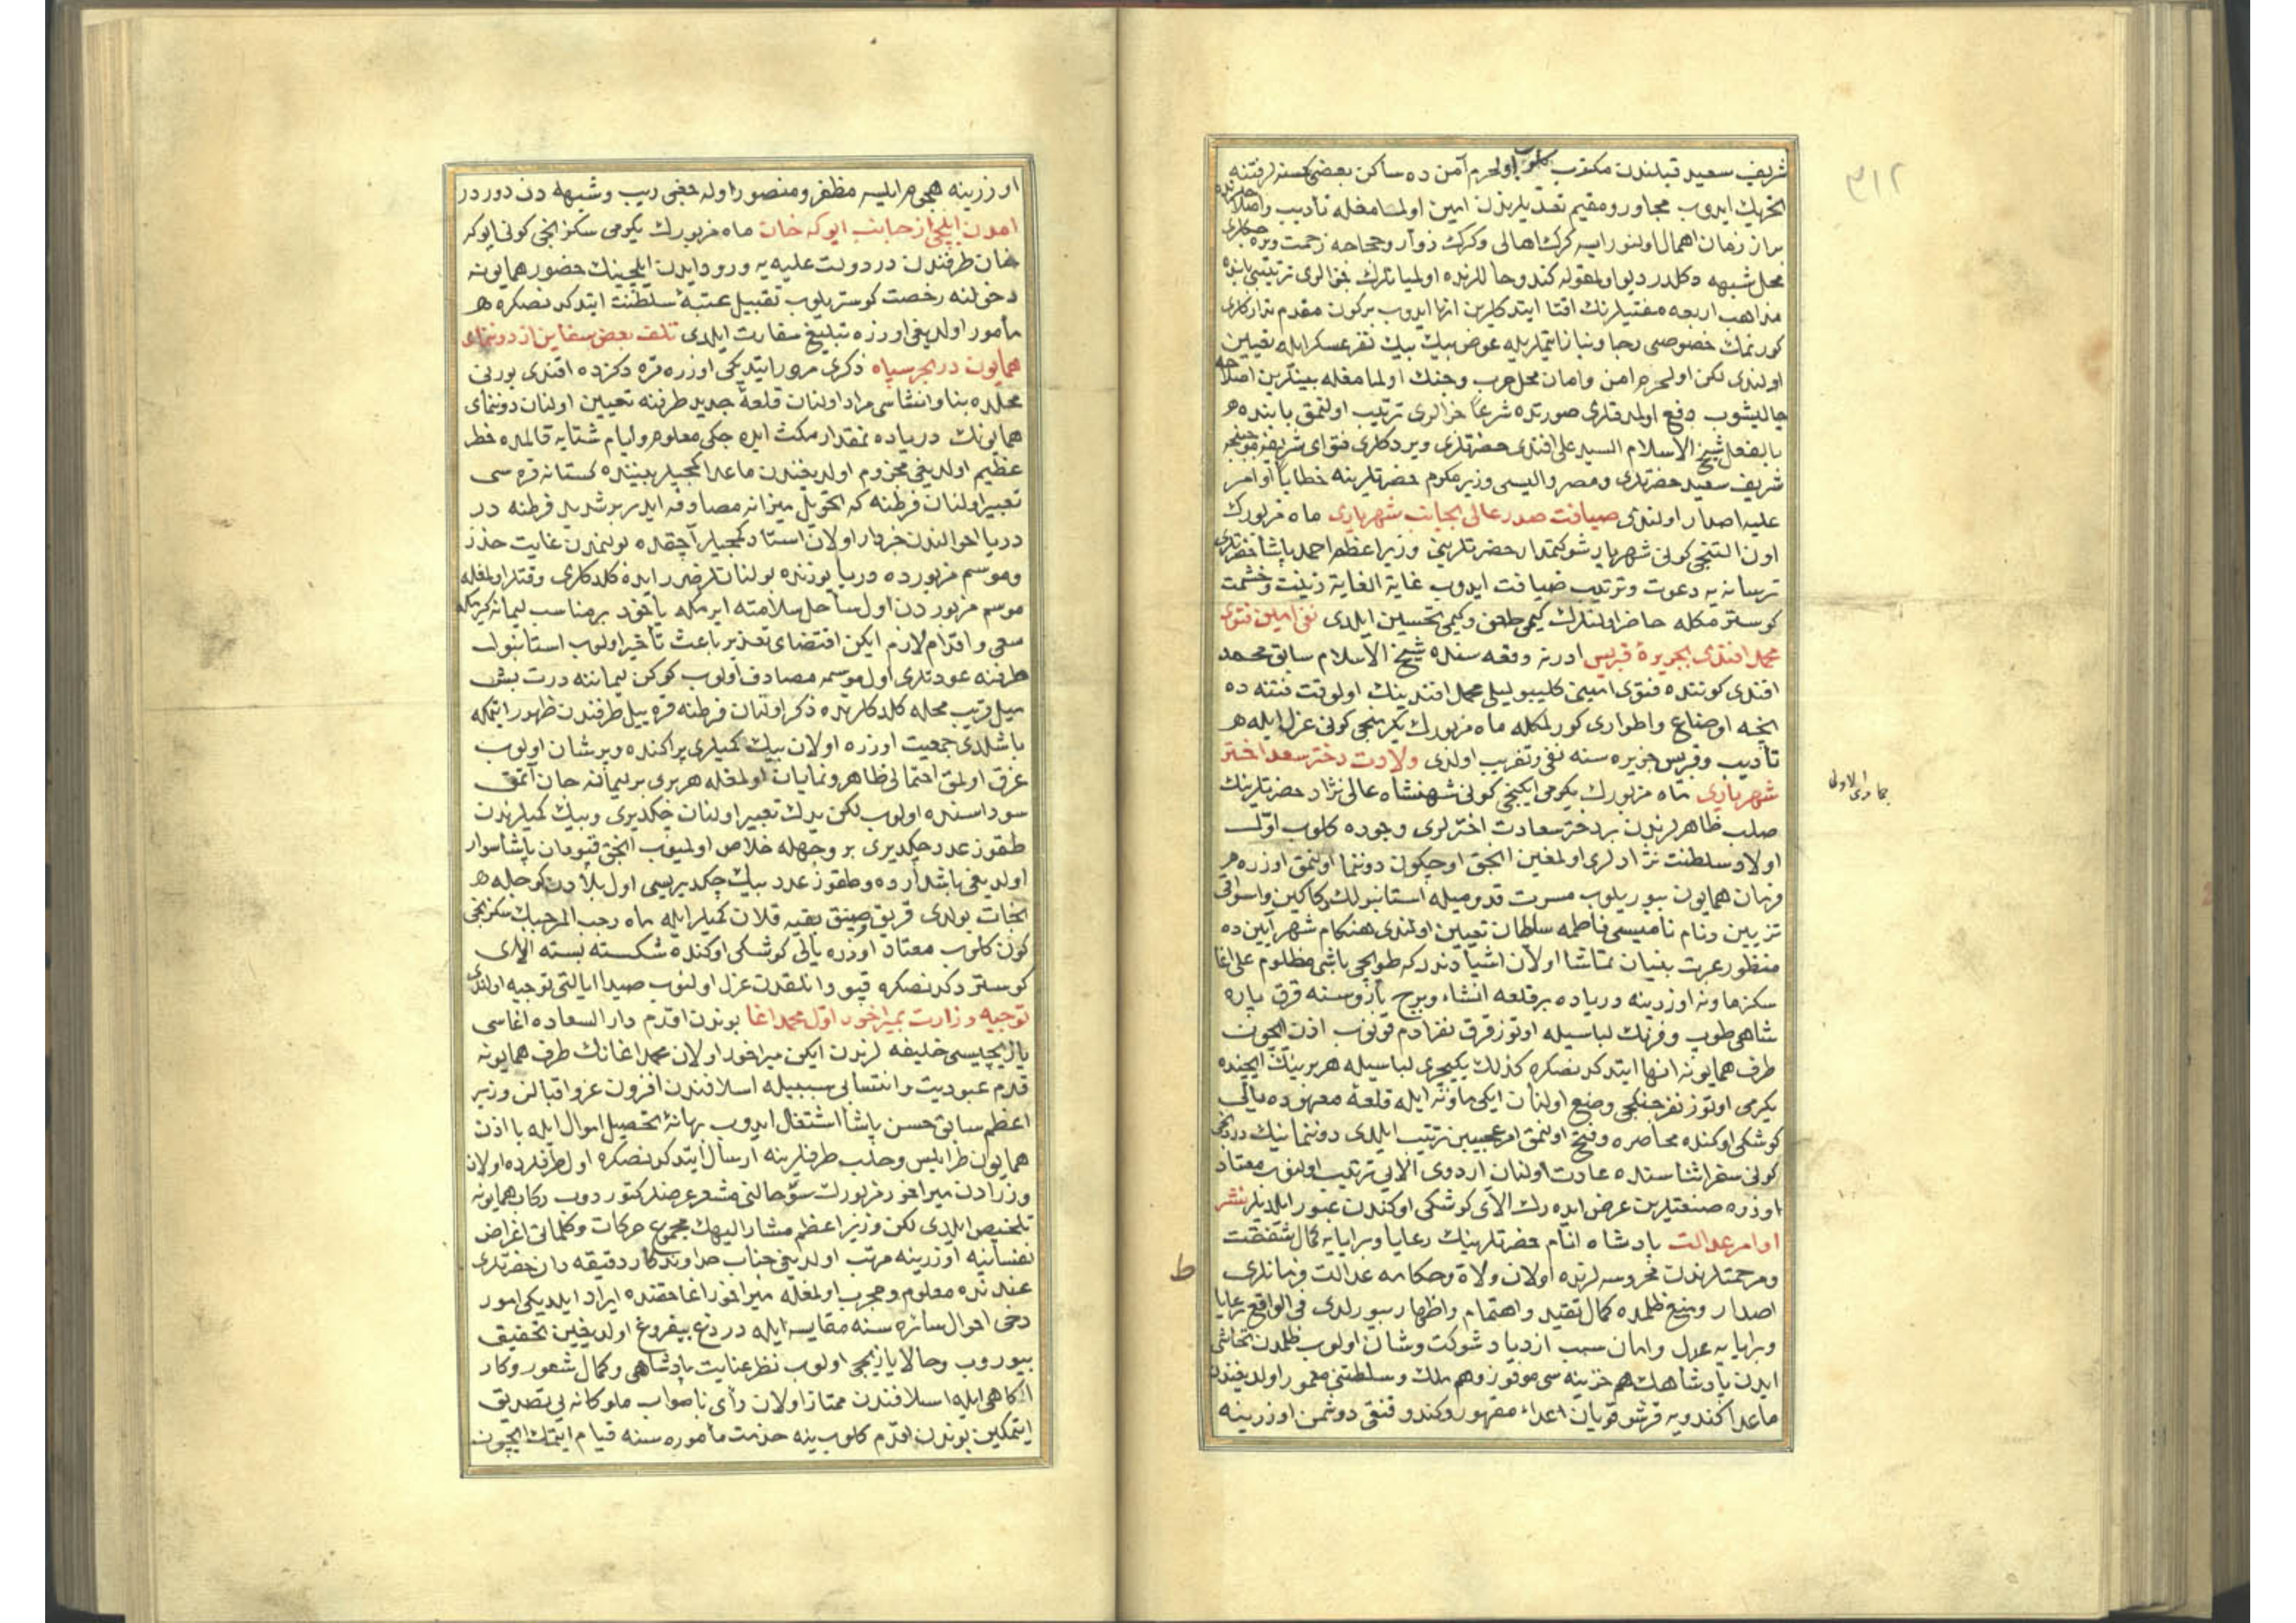 ٣١٢
شريف سعيد قبلندن مكتوب كلوب اولحرم آمن ده ساكن بعضى كسنه لر فتنه
تحريك ايدوب مجاور ومقيم تعديلرندن امين اولمامغله تأديب واصلاحلرنده
براز زمان اهمال اولنور ايسه كرك اهالى وكرك زوار وحجاجه زحمت ويره جكلرى
محل شبهه دكلدر ديو اولمقوله كندو حاللرنده اولميانلرك جزالرى ترتيبى بابنده
مذاهب اربعه مفتيلرنك افتا ايتدكلرين انها ايدوب بركون مقدم تداركلرى
كورنمك خصوصنى رجا ونياز ايتملريله عوض بيك بيك نفر عسكر ايله تعيين
اولندى لكن اولحرم امن وامان محل حرب وجنك اولمامغله بينلرين اصلاحه
چاليشوب دفع اولمدقلرى صورتده شرعا جزالرى ترتيب اولنمق بابنده
بالفعل شيخ الاسلام السيد على افندى حضرتلرى ويردكلرى فتواى شريفه موجبنجه
شريف سعيد حضرتلرى ومصر واليسى وزير مكرم حضرتلرينه خطابا اوامر
عليه اصدار اولندى ضيافت صدر عالى بجانب شهريارى ماه مزبورك
اون التنجى كونى شهريار شوكتمدار حضرتلرينى وزير اعظم احمد پاشا حضرتلرى
ترسانه يه دعوت وترتيب ضيافت ايدوب غاية الغايه زينت وحشمت
كوسترمكله حاضر اولنلرك كيمى طعن وكيمى تحسين ايلدى نفى امين فتوى
محمد افندى بجزيرۀ قبريس ادرنه وقعه سنده شيخ الاسلام سابق محمد
افندى كوننده فتوى امينى كليبوليلى محمد افندينك اولوقت فتنه ده
نيجه اوضاع واطوارى كورلمكله ماه مزبورك يكرمنجى كونى عزل ايله
تأديب وقبريس جزيره سنه نفى وتغريب اولندى ولادت دختر سعد اختر
شهريارى ماه مزبورك يكرمى ايكنجى كونى شهنشاه عالى نژاد حضرتلرينك
جمادى الاولى
صلب طاهرلرندن بر دختر سعادت اخترلرى وجوده كلوب اول
اولاد سلطنت نژادلرى اولمغين انجق اوچكون دوننما اولنمق اوزره
فرمان همايون بيوريلوب مسرت قدوميله استانبولك دكاكين واسواقى
تزيين ونام ناميسى فاطمه سلطان تعيين اولندى هنكام شهر آيين ده
منظور عبرت بينان تماشا اولان اشيادندر كه طوپجى باشى مظلوم على اغا
سكز ماونه اوزرينه درياده بر قلعه انشاء وبرج بازوسنه قرق پاره
شاهى طوپ وفرنك لباسيله اوتوز قرق نفر ادم قويوب اذن ايچون
طرف همايونه انها ايتدكدنصكره كذلك يكيچرى لباسيله هر برينك ايچنده
يكرمى اوتوز نفر جنكجى وضع اولنان ايكى ماونه ايله قلعۀ معهوده يالى
كوشكى اوكنده محاصره وفتح اولنمق امر عجيبين ترتيب ايلدى دوننمانيك دردنجى
كونى سفر اثناسنده عادت اولنان اردوى الايى ترتيب اولنوب معتاد
اوزره صنعتلرين عرض ايده رك الاى كوشكى اوكندن عبور ايلديلر نشر
اوامر عدالت پادشاه انام حضرتلرينك رعايا وبرايايه كمال شفقت
ومرحمتلرندن محروسه لرنده اولان ولاة وحكامه عدالت فرمانلرى
ط
اصدار ومنع ظلمده كمال تقيد واهتمام واظهار بيورلدى فى الواقع رعايا
وبرايايه عدل وامان سبب ازدياد شوكت وشان اولوب ظلمدن تحاشى
ايدن پادشاهك هم خزينه سى موفور وهم ملك وسلطنتى معمور اولديغندن
ماعدا كندويه قرشو قويان اعداء مقهور وكندو قنغى دوشمن اوزرينه
اوزرينه هجوم ايلسه مظفر ومنصور اوله جغى ريب وشبهه دن دوردر
امدن ايلچى از جانب ايوكه خان ماه مزبورك يكرمى سكزنجى كونى ايوكه
خان طرفندن در دولت عليه يه ورود ايدن ايلچينك حضور همايونه
دخولنه رخصت كوستريلوب تقبيل عتبۀ سلطنت ايتدكدنصكره
مأمور اولديغى اوزره تبليغ سفارت ايلدى تلف بعض سفاين از دوننماى
همايون در بحر سياه ذكرى مرور ايتديكى اوزره قره دكزده افندى بورنى
محلده بنا وانشاسى مراد اولنان قلعۀ جديد طرفنه تعيين اولنان دوننماى
همايونك درياده نمقدار مكث ايده جكى معلوم وايام شتايه قالمده خطر
عظيم اولديغى مجزوم اولديغندن ماعدا كميجيلر بيننده كستانه قره سى
تعبير اولنان فرطنه كه تحويل ميزانه مصادفه ايدر بر شديد فرطنه در
دريا احوالندن خبردار اولان استاد كميجيلر آچقده بولنمدن غايت حذر
وموسم مزبورده دريا يوزنده بولنانلر ضرر ايده كلدكلرى وقتلر اولمغله
موسم مزبوردن اول ساحل سلامته ايرمكله ياخود بر مناسب ليمانه كيرمكله
سعى واقدام لازم ايكن اقتضاى تقدير باعث تأخير اولوب استانبول
طرفنه عودتلرى اول موسمه مصادف اولوب كوكن ليماننه درت بش
ميل قريب محله كلدكلرنده ذكر اولنان فرطنه قره ييل طرفندن ظهور ايتمكه
باشلدى جمعيت اوزره اولان بيك كميلرى پراكنده وپريشان اولوب
غرق اولمق احتمالى ظاهر ونمايان اولمغله هر برى بر ليمانه جان آتمق
سوداسنده اولوب لكن يدك تعبير اولنان چكديرى وبيك كميلرندن
طقوز عدد چكديرى بر وجهله خلاص اولميوب انجق قپودان پاشا سوار
اولديغى باشدارده وطقوز عدد بيك چكديريسى اول بلادن كوجله
نجات بولدى قريق صينق بقيه قلان كميلر ايله ماه رجب المرجبك سكزنجى
كون كلوب معتاد اوزره يالى كوشكى اوكنده شكسته بسته الاى
كوستردكدنصكره قپودانلقدن عزل اولنوب صيدا ايالتى توجيه اولندى
توجيه وزارت بميراخور اول محمد اغا بوندن اقدم دار السعاده اغاسى
يازيجيسى خليفه لرندن ايكن ميراخور اولان محمد اغانك طرف همايونه
قدم عبوديت وانتسابى سببيله اسلافندن افزون عز واقبالن وزير
اعظم سابق حسن پاشا استثقال ايدوب بهانۀ تحصيل اموال ايله با اذن
همايون طرابلس وحلب طرفلرينه ارسال ايتدكدنصكره اول طرفلرده اولان
وزرادن ميراخور مزبورك سوء حالنى مشعر عرضلر كتوردوب ركاب همايونه
تلخيص ايلدى لكن وزير اعظم مشار اليهك مجموع حركات وكلماتى اغراض
نفسانيه اوزرينه مرتب اولديغى جناب خداوندكار دقيقه دان حضرتلرى
عندنده معلوم ومجرب اولمغله ميراخور اغا حقنده ايراد ايلديكى امور
دخى احوال سائره سنه مقايسه ايله دروغ بيفروغ اولديغين تحقيق
بيوروب وحالا يازيجى اولوب نظر عنايت پادشاهى وكمال شعور وكار
آكاهى ايله اسلافندن ممتاز اولان رأى ناصواب ملوكانه يى تصديق
ايتمكين بوندن اقدم كلوب ينه خدمت مأموره سنه قيام ايتمك ايچون